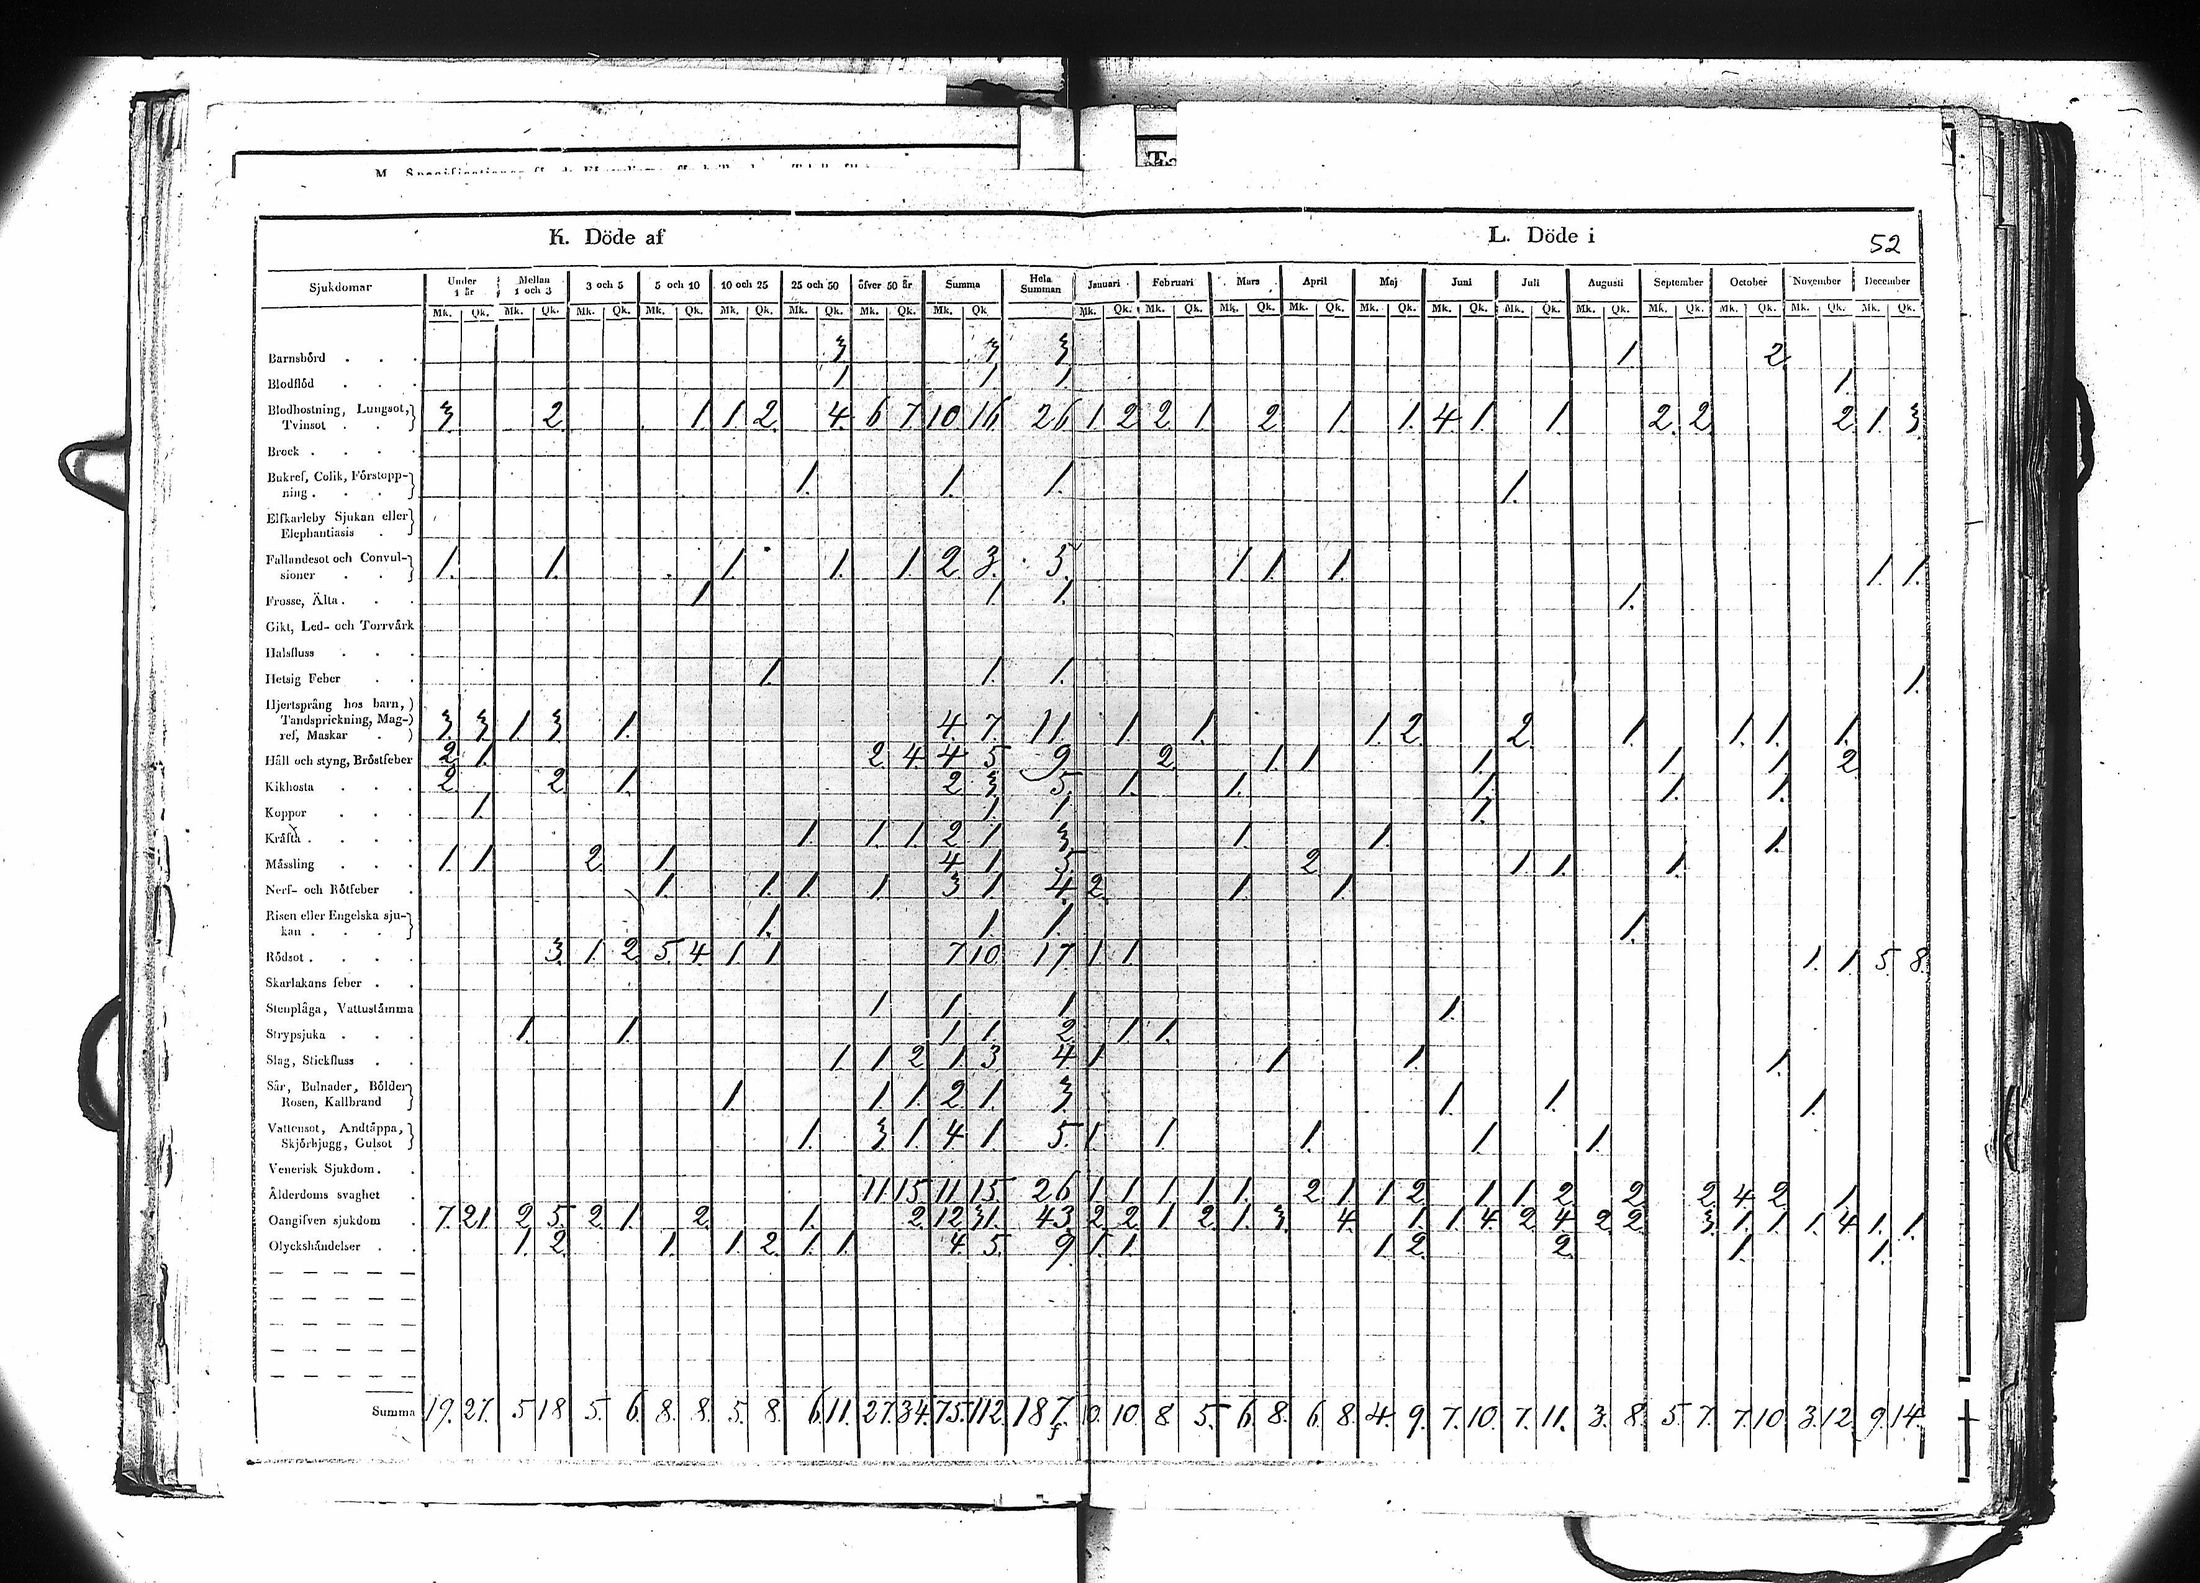 K. Döde af L. Döde i 52
Sjukdomar Under 1 år Mellan 1 och 3 3 och 5 5 och 10 10 och 25 25 och 50 öfver 50 år Summa Hela Summan Januari Februari Mars April Maj Juni Juli Augusti September October November December
Mk. Qk. Mk. Qk. Mk. Qk. Mk. Qk. Mk. Qk. Mk. Qk. Mk. Qk. Mk. Qk Mk. Qk. Mk. Qk. Mk. Qk. Mk. Qk. Mk. Qk. Mk. Qk. Mk. Qk. Mk. Qk. Mk. Qk. Mk. Qk. Mk. Qk. Mk. Qk.
Barnsbörd 3 3 3 1 2
Blodflöd 1 1 1 1
Blodhostning, Lungsot,
Tvinsot 3. 2 1. 1. 2. 4. 6 7 10 16 26 1. 2 2 1 2 1. 1. 4. 1. 1. 2. 2 2 1. 3.
Brock
Bukref, Colik, Förstopp-
ning 1. 1. 1. 1.
Elfkarleby Sjukan eller
Elephantiasis
Fallandesot och Convul-
sioner 1. 1. 1. 1. 1. 2. 3. 5. 1. 1. 1. 1. 1.
Frosse, Älta 1 1 1. 1.
Gikt, Led- och Torrvärk
Halsfluss
Hetsig Feber 1. 1. 1. 1.
Hjertsprång hos barn,
Tandsprickning, Mag-
ref, Maskar 3. 3 1. 3 1. 4. 7. 11. 1. 1. 1. 2. 2. 1. 1. 1. 1.
Håll och styng, Bröstfeber 2 1 2 4 4 5 9 2 1. 1. 1. 1. 1. 2
Kikhosta 2 2 1. 2 3 5. 1. 1. 1. 1. 1.
Koppor 1. 1 1 1.
Kräfta 1. 1. 1. 2 1 3 1. 1. 1.
Mässling 1. 1 2 1. 4 1 5 2 1. 1. 1.
Nerf- och Rötfeber 1. 1. 1 1. 3 1 4 2 1. 1.
Risen eller Engelska sju-
kan 1. 1 1. 1.
Rödsot 3. 1. 2. 5. 4. 1. 1 7 10 17. 1. 1. 1. 1. 5. 8.
Skarlakans feber
Stenplåga, Vattustämma 1 1 1 1.
Strypsjuka 1. 1. 1. 1. 2 1. 1.
Slag, Stickfluss 1. 1. 2 1. 3 4 1. 1. 1. 1.
Sår, Bulnader, Bölder
Rosen, Kallbrand 1. 1. 1. 2. 1. 3. 1. 1. 1.
Vattensot, Andtäppa,
Skjörbjugg, Gulsot 1. 3. 1. 4 1. 5. 1. 1. 1. 1. 1.
Venerisk Sjukdom
Ålderdoms svaghet 11. 15 11. 15. 26 1. 1. 1. 1. 1. 2 1. 1. 2 1. 1. 2 2 2 4. 2. 1.
Oangifven sjukdom 7. 21. 2 5. 2 1. 2 1. 2. 12. 31. 43. 2 2 1. 2. 1. 3. 4. 1. 1. 4. 2 4 2 2 3. 1. 1. 1. 4. 1. 1.
Olyckshändelser 1. 2. 1. 1. 2. 1. 1. 4. 5. 9. 1. 1. 1. 2. 2. 1. 1.
Summa 19. 27. 5 18 5. 6. 8. 8. 5. 8. 6. 11. 27. 34. 75. 112. 187. 10. 10. 8. 5. 6. 8. 6. 8. 4. 9. 7. 10. 7. 11. 3. 8. 5. 7. 7. 10. 3. 12. 9. 14.